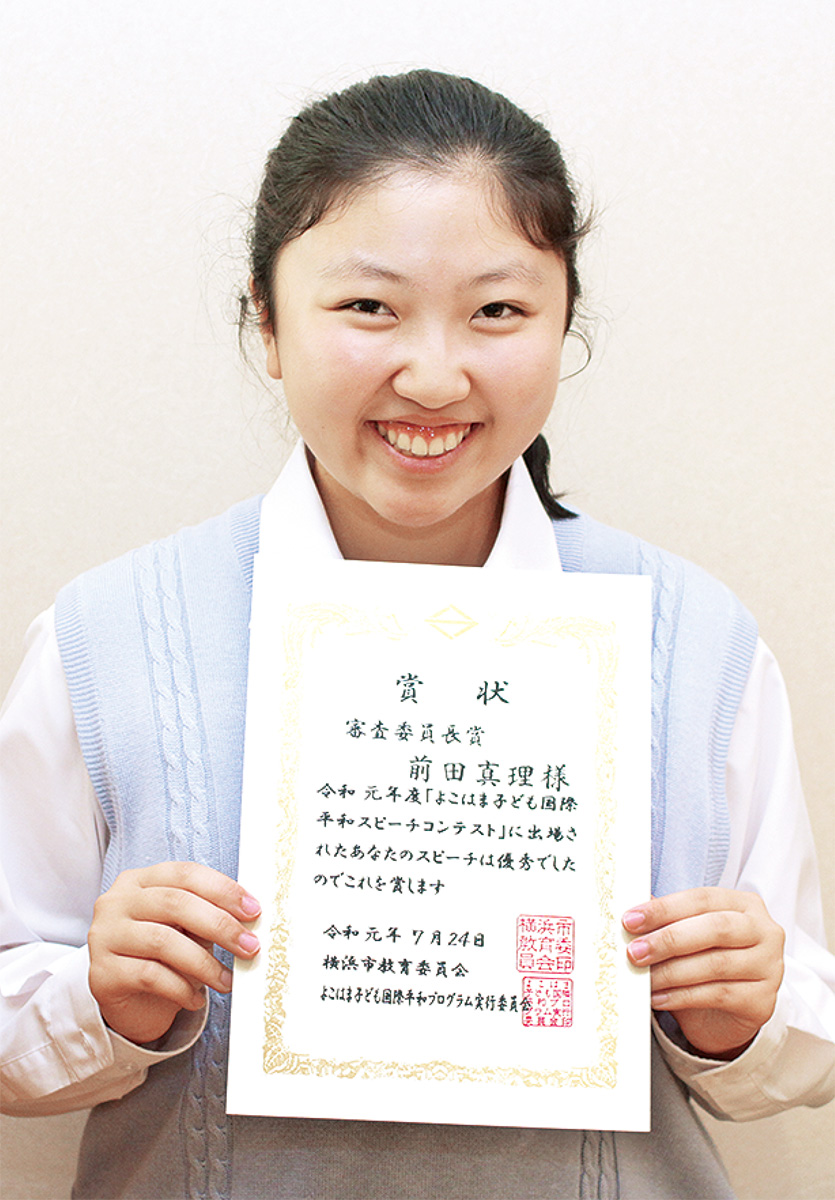 賞 状
審査委員長賞
前田真理様
令和 元年度「よこはま子ども国際
平和スピーチコンテスト」に出場さ
れたあなたのスピーチは優秀でした
のでこれを賞します
令和 元年 7月24日
横浜市教育委員会
よこはま子ども国際平和プログラム実行委員会